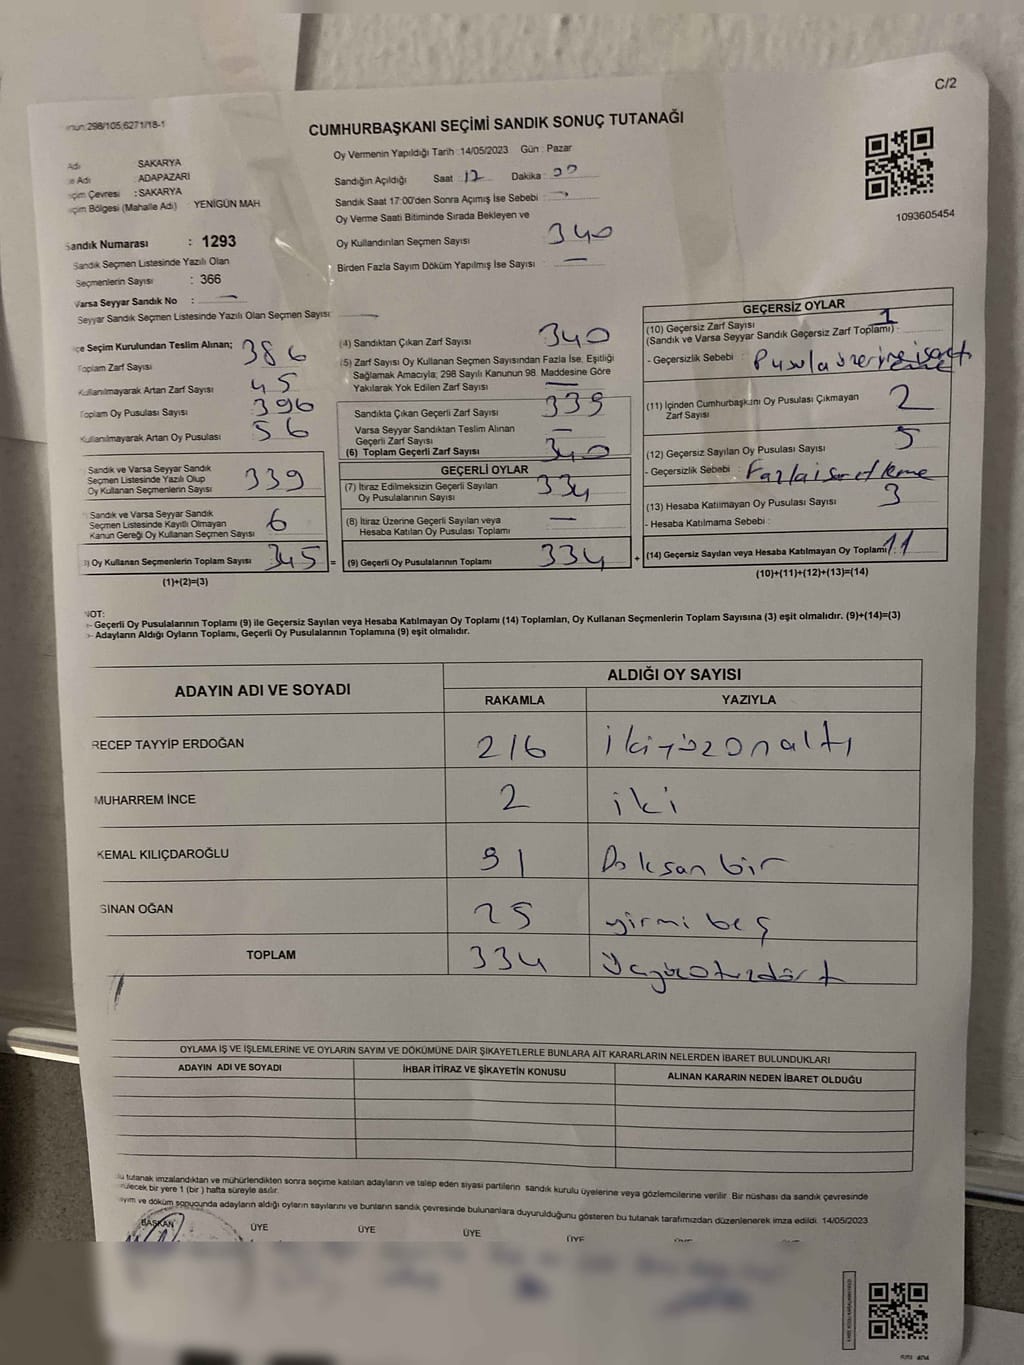 C/2
298/105;6271/18-1
CUMHURBAŞKANI SEÇİMİ SANDIK SONUÇ TUTANAĞI
Adı SAKARYA
Adı : ADAPAZARI
Çevresi : SAKARYA
Bölgesi (Mahalle Adı) YENİGÜN MAH
Sandık Numarası : 1293
Sandık Seçmen Listesinde Yazılı Olan
Seçmenlerin Sayısı : 366
Varsa Seyyar Sandık No : —
Seyyar Sandık Seçmen Listesinde Yazılı Olan Seçmen Sayısı: —
Oy Vermenin Yapıldığı Tarih :14/05/2023 Gün : Pazar
Sandığın Açıldığı Saat : 17 Dakika :
Sandık Saat 17:00'den Sonra Açımış İse Sebebi :
Oy Verme Saati Bitiminde Sırada Bekleyen ve
Oy Kullandırılan Seçmen Sayısı 340
Birden Fazla Sayım Döküm Yapılmış İse Sayısı : —
1093605454
Seçim Kurulundan Teslim Alınan;
Toplam Zarf Sayısı 386
Kullanılmayarak Artan Zarf Sayısı 45
Toplam Oy Pusulası Sayısı 396
Kullanılmayarak Artan Oy Pusulası 56
Sandık ve Varsa Seyyar Sandık
Seçmen Listesinde Yazılı Olup
Oy Kullanan Seçmenlerin Sayısı 339
Sandık ve Varsa Seyyar Sandık
Seçmen Listesinde Kayıtlı Olmayan
Kanun Gereği Oy Kullanan Seçmen Sayısı 6
Oy Kullanan Seçmenlerin Toplam Sayısı 345 =
(1)+(2)=(3)
(4) Sandıktan Çıkan Zarf Sayısı 340
(5) Zarf Sayısı Oy Kullanan Seçmen Sayısından Fazla İse, Eşitliği
Sağlamak Amacıyla; 298 Sayılı Kanunun 98. Maddesine Göre
Yakılarak Yok Edilen Zarf Sayısı —
Sandıkta Çıkan Geçerli Zarf Sayısı 339
Varsa Seyyar Sandıktan Teslim Alınan
Geçerli Zarf Sayısı —
(6) Toplam Geçerli Zarf Sayısı 340
GEÇERLİ OYLAR
(7) İtiraz Edilmeksizin Geçerli Sayılan
Oy Pusulalarının Sayısı 334
(8) İtiraz Üzerine Geçerli Sayılan veya
Hesaba Katılan Oy Pusulası Toplamı —
(9) Geçerli Oy Pusulalarının Toplamı 334 +
GEÇERSİZ OYLAR
(10) Geçersiz Zarf Sayısı 1
(Sandık ve Varsa Seyyar Sandık Geçersiz Zarf Toplamı) :
- Geçersizlik Sebebi : Pusula üzerine
(11) İçinden Cumhurbaşkanı Oy Pusulası Çıkmayan
Zarf Sayısı 2
(12) Geçersiz Sayılan Oy Pusulası Sayısı 5
- Geçersizlik Sebebi : Fazla
(13) Hesaba Katılmayan Oy Pusulası Sayısı 3
- Hesaba Katılmama Sebebi :
(14) Geçersiz Sayılan veya Hesaba Katılmayan Oy Toplamı 11
(10)+(11)+(12)+(13)=(14)
NOT:
- Geçerli Oy Pusulalarının Toplamı (9) ile Geçersiz Sayılan veya Hesaba Katılmayan Oy Toplamı (14) Toplamları, Oy Kullanan Seçmenlerin Toplam Sayısına (3) eşit olmalıdır. (9)+(14)=(3)
- Adayların Aldığı Oyların Toplamı, Geçerli Oy Pusulalarının Toplamına (9) eşit olmalıdır.
ADAYIN ADI VE SOYADI ALDIĞI OY SAYISI
RAKAMLA YAZIYLA
RECEP TAYYİP ERDOĞAN 216 ikiyüzonaltı
MUHARREM İNCE 2 iki
KEMAL KILIÇDAROĞLU 91 Doksan bir
SİNAN OĞAN 25 yirmi beş
TOPLAM 334 Üçyüzotuzdört
OYLAMA İŞ VE İŞLEMLERİNE VE OYLARIN SAYIM VE DÖKÜMÜNE DAİR ŞİKAYETLERLE BUNLARA AİT KARARLARIN NELERDEN İBARET BULUNDUKLARI
ADAYIN ADI VE SOYADI İHBAR İTİRAZ VE ŞİKAYETİN KONUSU ALINAN KARARIN NEDEN İBARET OLDUĞU
tutanak imzalandıktan ve mühürlendikten sonra seçime katılan adayların ve talep eden siyasi partilerin sandık kurulu üyelerine veya gözlemcilerine verilir. Bir nüshası da sandık çevresinde
bir yere 1 (bir) hafta süreyle asılır.
ve döküm sonucunda adayların aldığı oyların sayılarını ve bunların sandık çevresinde bulunanlara duyurulduğunu gösteren bu tutanak tarafımızdan düzenlenerek imza edildi. 14/05/2023
BAŞKAN ÜYE ÜYE ÜYE ÜYE